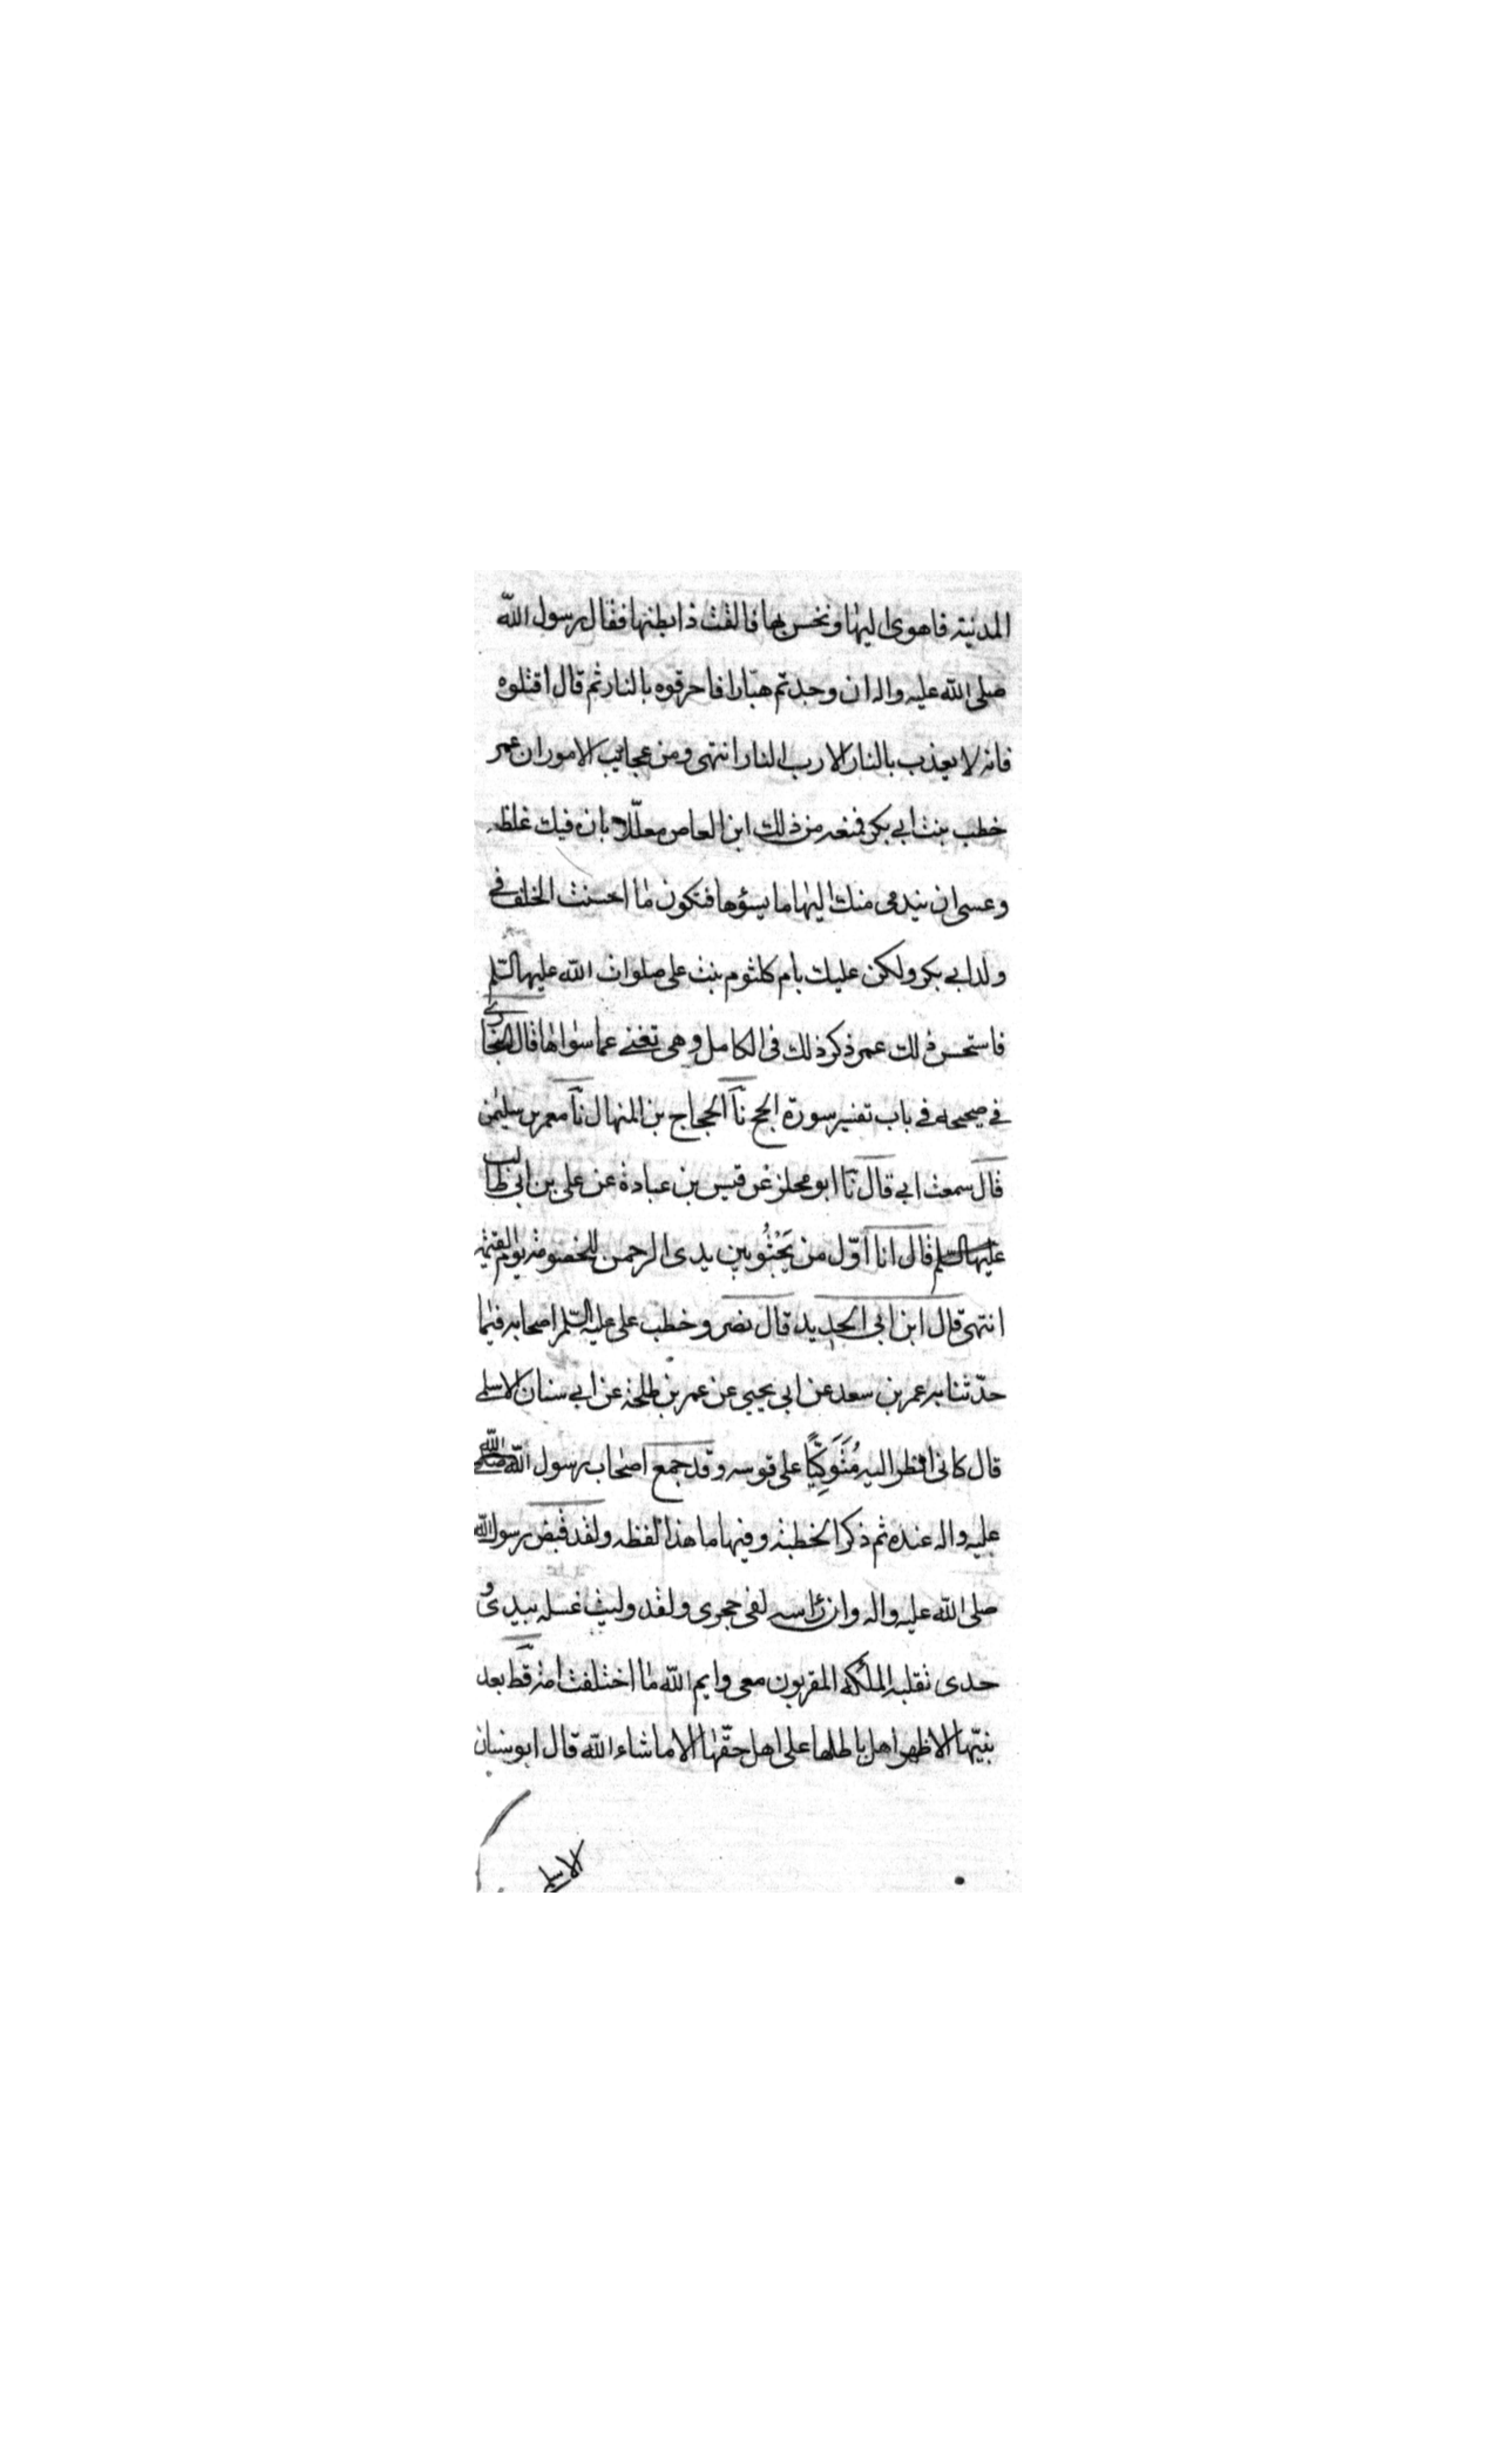 المدينة فاهوى اليها ونخس بها فالقت ذا بطنها فقال رسول الله
صلى الله عليه واله ان وجدتم هبّارا فاحرقوه بالنار ثم قال اقتلوه
فانه لا يعذب بالنار الا رب النار انتهى ومن عجائب الامور ان عمر
خطب بنت ابي بكر فمنعه من ذلك ابن العاص معلّلا بان فيك غلظه
وعسى ان يبدمى منك اليها ما يسؤها فتكون ما احسنت الخلف في
ولد ابي بكر ولكن عليك بام كلثوم بنت على صلوات الله عليهما السّلم
فاستحسن ذلك عمر ذكر ذلك فى الكامل وهى تغنى عما سواها قال البخارى
في صحيحه في باب تفسير سورة الحج نا الحجاج بن المنهال نا معمر بن سليمن
قال سمعت ابي قال نا ابو مجلز عن قيس بن عبادة عن على بن ابي طالب
عليهما السّلم قال انا اوّل من يَجْثُو بين يدى الرحمن للخصومة يوم القيمة
انتهى قال ابن ابي الحديد قال نصر وخطب على عليه السّلم اصحابه فيما
حدّثنا به عمر بن سعد عن ابي يحيى عن عمر بن طلحة عن ابي سنان الاسلمى
قال كانى انظر اليه مُتَوَكِّيًا على قوسه وقد جمع اصحاب رسول الله صلى الله
عليه واله عنده ثم ذكر الخطبة وفيها ما هذا لفظه ولقد قبض رسول الله
صلى الله عليه واله وان راسه لفى حجرى ولقد وليت غسله بيدى و
حدى تقلبه الملئكه المقربون معى وايم الله ما اختلفت امة قط بعد
نبيّها الا ظهر اهل باطلها على اهل حقّها الا ما شاء الله قال ابو سنان
الاسلمى